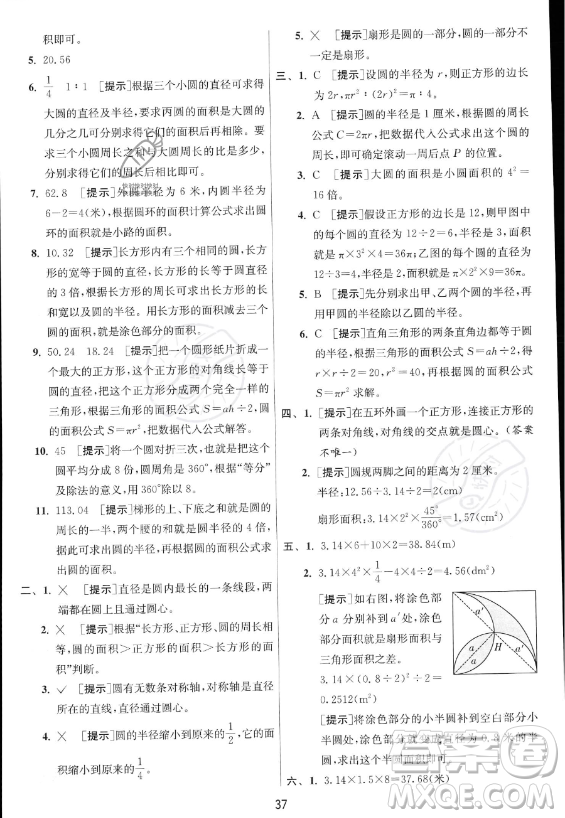 积即可。
5. 20.56
6. 1/4　1∶1 [提示]根据三个小圆的直径可求得
大圆的直径及半径，要求两圆的面积是大圆的
几分之几可分别求得它们的面积后再相除。要
求三个小圆周长之和与大圆周长的比是多少，
分别求得它们的周长再相比即可。
7. 62.8 [提示]外圆半径为 6 米，内圆半径为
6－2＝4(米)，根据圆环的面积计算公式求出圆
环的面积就是小路的面积。
8. 10.32 [提示]长方形内有三个相同的圆，长方
形的宽等于圆的直径，长方形的长等于圆直径
的 3 倍，根据长方形的面积减去三个圆的面积
就是涂色部分的面积。
9. 50.24　18.24 [提示]把一个圆形纸片折成一
个最大的正方形，这个正方形的对角线长等于
圆的直径，把这个正方形分成两个完全一样的
三角形，根据公式 S＝ah÷2，圆的面积公式
S＝πr²，把数据代入公式解答。
10. 45 [提示]将一个圆对折三次，也就是把这个
圆平均分成 8 份，圆周角是 360°，根据“等分”
及除法的意义，用 360°除以 8。
11. 113.04 [提示]梯形的上、下底之和就是圆的
周长的一半，两个腰的和就是圆的半径的 4 倍，
据此可求出圆的半径，再根据圆的面积公式求
出圆的面积。
二、1. × [提示]直径是圆内最长的一条线段，两
端都在圆上且通过圆心。
2. × [提示]根据“长方形、正方形、圆的周长相
等，圆的面积＞正方形的面积＞长方形的面
积”判断。
3. ✓ [提示]圆有无数条对称轴，对称轴是直径
所在的直线，对称轴都通过圆心。
4. × [提示]圆的半径缩小到原来的1/2，它的面
积缩小到原来的1/4。
5. × [提示]扇形是圆的一部分，圆的一部分不
一定是扇形。
三、1. C [提示]设圆的半径为 r，则正方形的边长
为 2r，πr²∶(2r)²＝π∶4。
2. C [提示]圆的半径是 1 厘米，根据圆的周长
公式 C＝2πr，把数据代入公式求出这个圆的
周长，即可确定滚动一周后点 P 的位置。
3. C [提示]大圆的面积是小圆面积的 4²＝
16 倍。
4. C [提示]假设正方形的边长是 12，则甲图中
的一个圆的半径为 12÷2÷2＝3，4 个圆的面积
为 π×3²×4＝36π；乙图的一个圆的半径为
12÷3÷2＝2，9 个圆的面积是 π×2²×9＝36π。
5. B [提示]先分别求出甲、乙两个圆的半径，再
用甲圆的半径除以乙圆的半径。
6. C [提示]直角三角形的两条直角边都等于圆
的半径，根据三角形的面积公式 S＝ah÷2，得
r×r÷2＝20，求出 r² 是多少，再根据圆的面积
公式 S＝πr² 求解。
四、1. [提示]在五环外画一个正方形，连接正方形的
两条对角线，对角线的交点就是圆心。(答案
不唯一)
2. [提示]圆规两脚之间的距离为 2 厘米。
半径：12.56÷3.14÷2＝2(cm)
扇形面积：3.14×2²×45°/360°＝1.57(cm²)
五、1. 3.14×6＋10×2＝38.84(m)
2. 3.14×4²×1/4－4×4÷2＝4.56(dm²)
[提示]如右图，将涂色部
分 a 补到空白部分 a′，涂色
部分面积就是扇形面积与
三角形面积之差。
3.14×(2÷2÷2)²×0.32＝
0.2512(m³)
[提示]将涂色部分的小半圆补到空白部分小
半圆处，涂色部分的面积就是大圆面积的一
半，求出半圆面积即可
六、1. 3.14×1.5×8＝37.68(米)
a′
a
a
H
a′
37